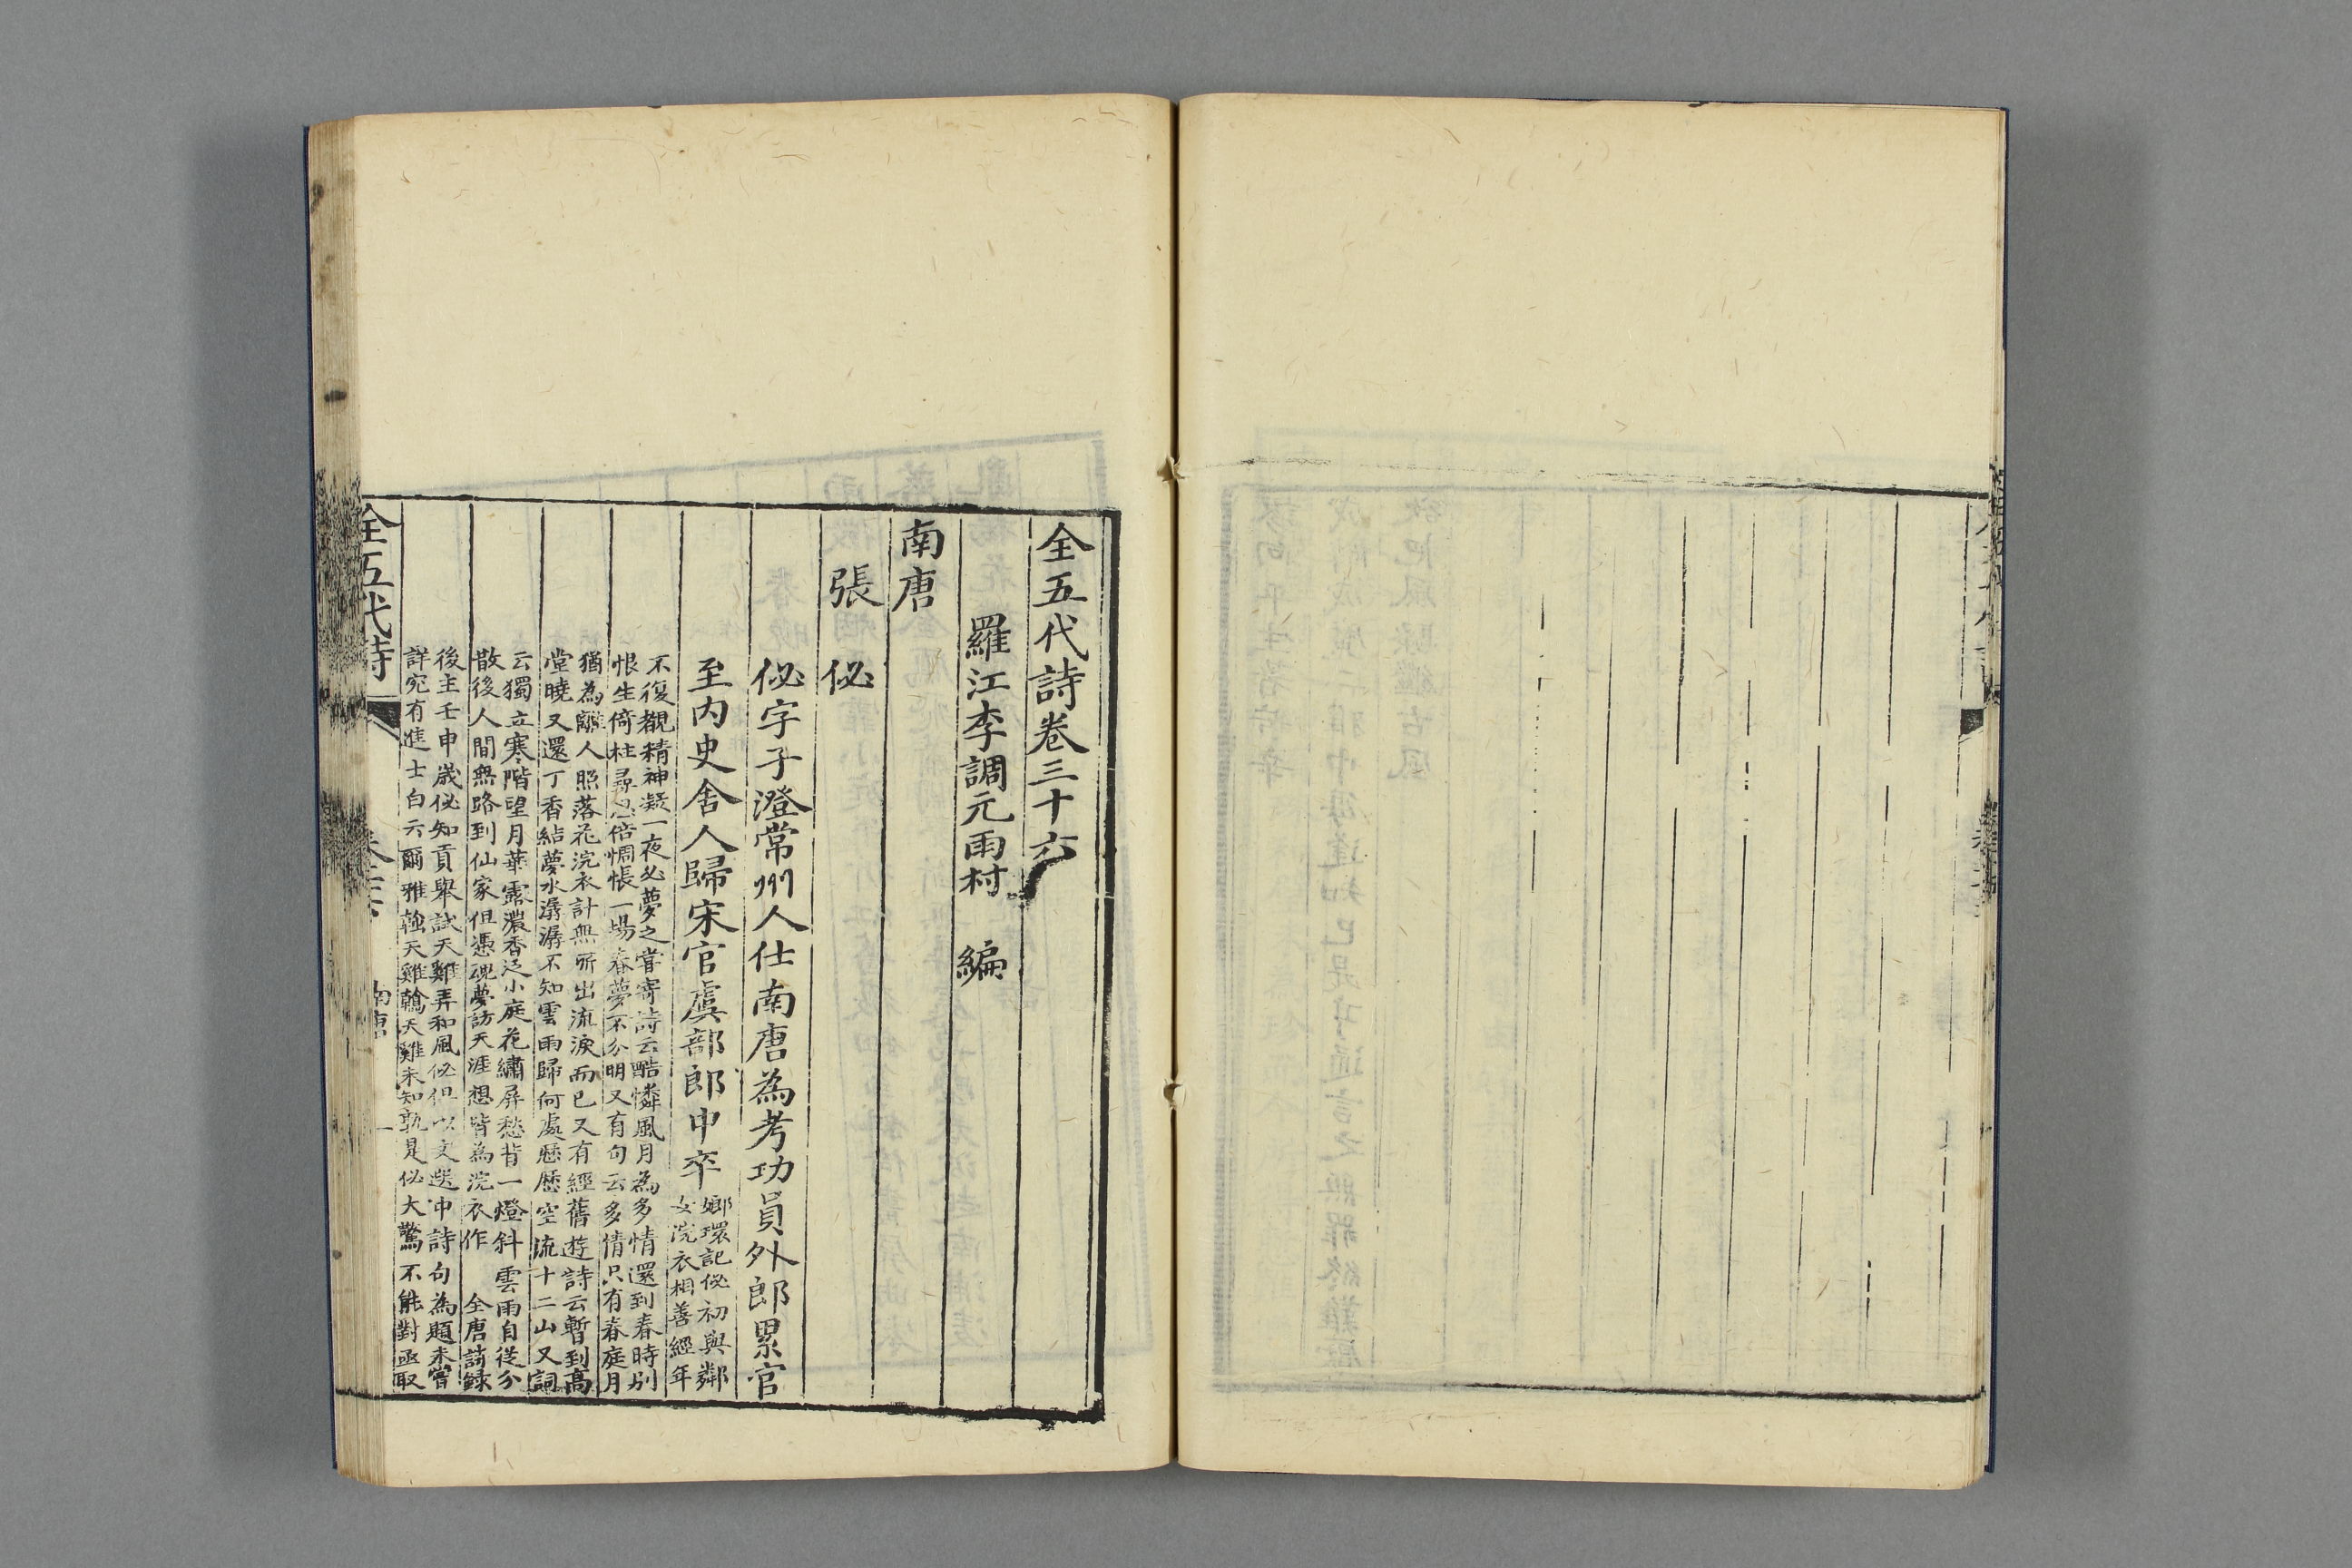 全五代詩卷三十六
羅江李調元雨村 編
南唐
張 佖
佖字子澄常州人仕南唐為考功員外郎累官
至內史舍人歸宋官虞部郎中卒
嫏環記佖初與鄰
女浣衣相善經年
不復覩精神凝一夜必夢之嘗寄詩云酷憐風月為多情還到春時别
恨生倚柱尋思倍惆悵一場春夢不分明又有句云多情只有春庭月
猶為離人照落花浣衣計無所出流淚而已又有經舊遊詩云暫到高
堂曉又還丁香結夢水潺潺不知雲雨歸何處歷歷空流十二山又詞
云獨立寒階望月華露濃香泛小庭花繡屏愁背一燈斜 雲雨自從分
散後人間無路到仙家但憑魂夢訪天涯想皆為浣衣作 全唐詩錄
後主壬申歲佖知貢舉試天雞弄和風佖但以文選中詩句為題未嘗
詳究有進士白云爾雅螒天雞鶾天雞未知孰是佖大驚不能對亟取
全五代詩
南唐
一